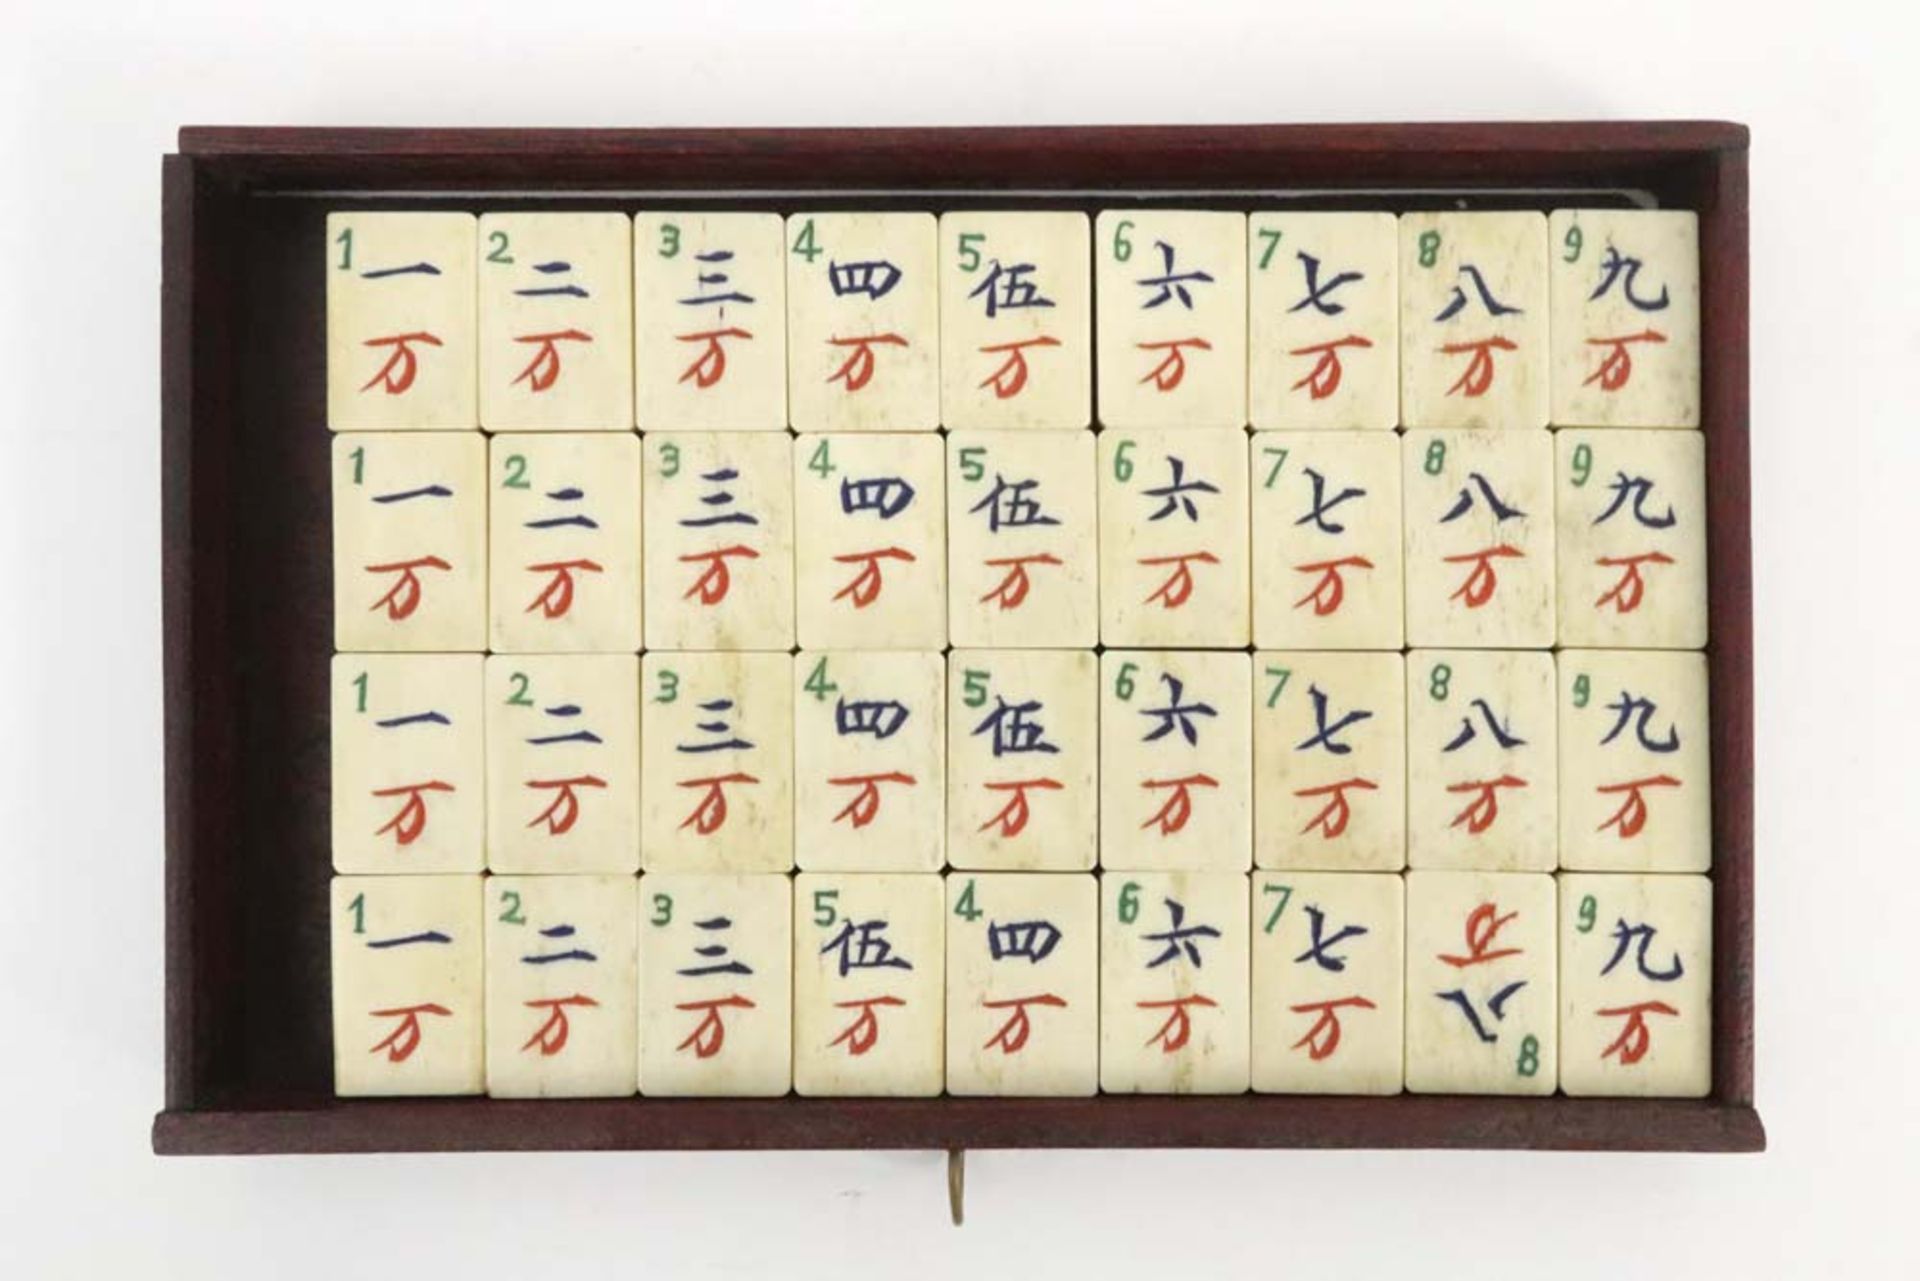 1 一 2 二 3 三 4 四 5 伍 6 六 7 七 8 八 9 九
万 万 万 万 万 万 万 万 万
1 一 2 二 3 三 4 四 5 伍 6 六 7 七 8 八 9 九
万 万 万 万 万 万 万 万 万
1 一 2 二 3 三 4 四 5 伍 6 六 7 七 8 八 9 九
万 万 万 万 万 万 万 万 万
1 一 2 二 3 三 5 伍 4 四 6 六 7 七 8 八 9 九
万 万 万 万 万 万 万 万 万